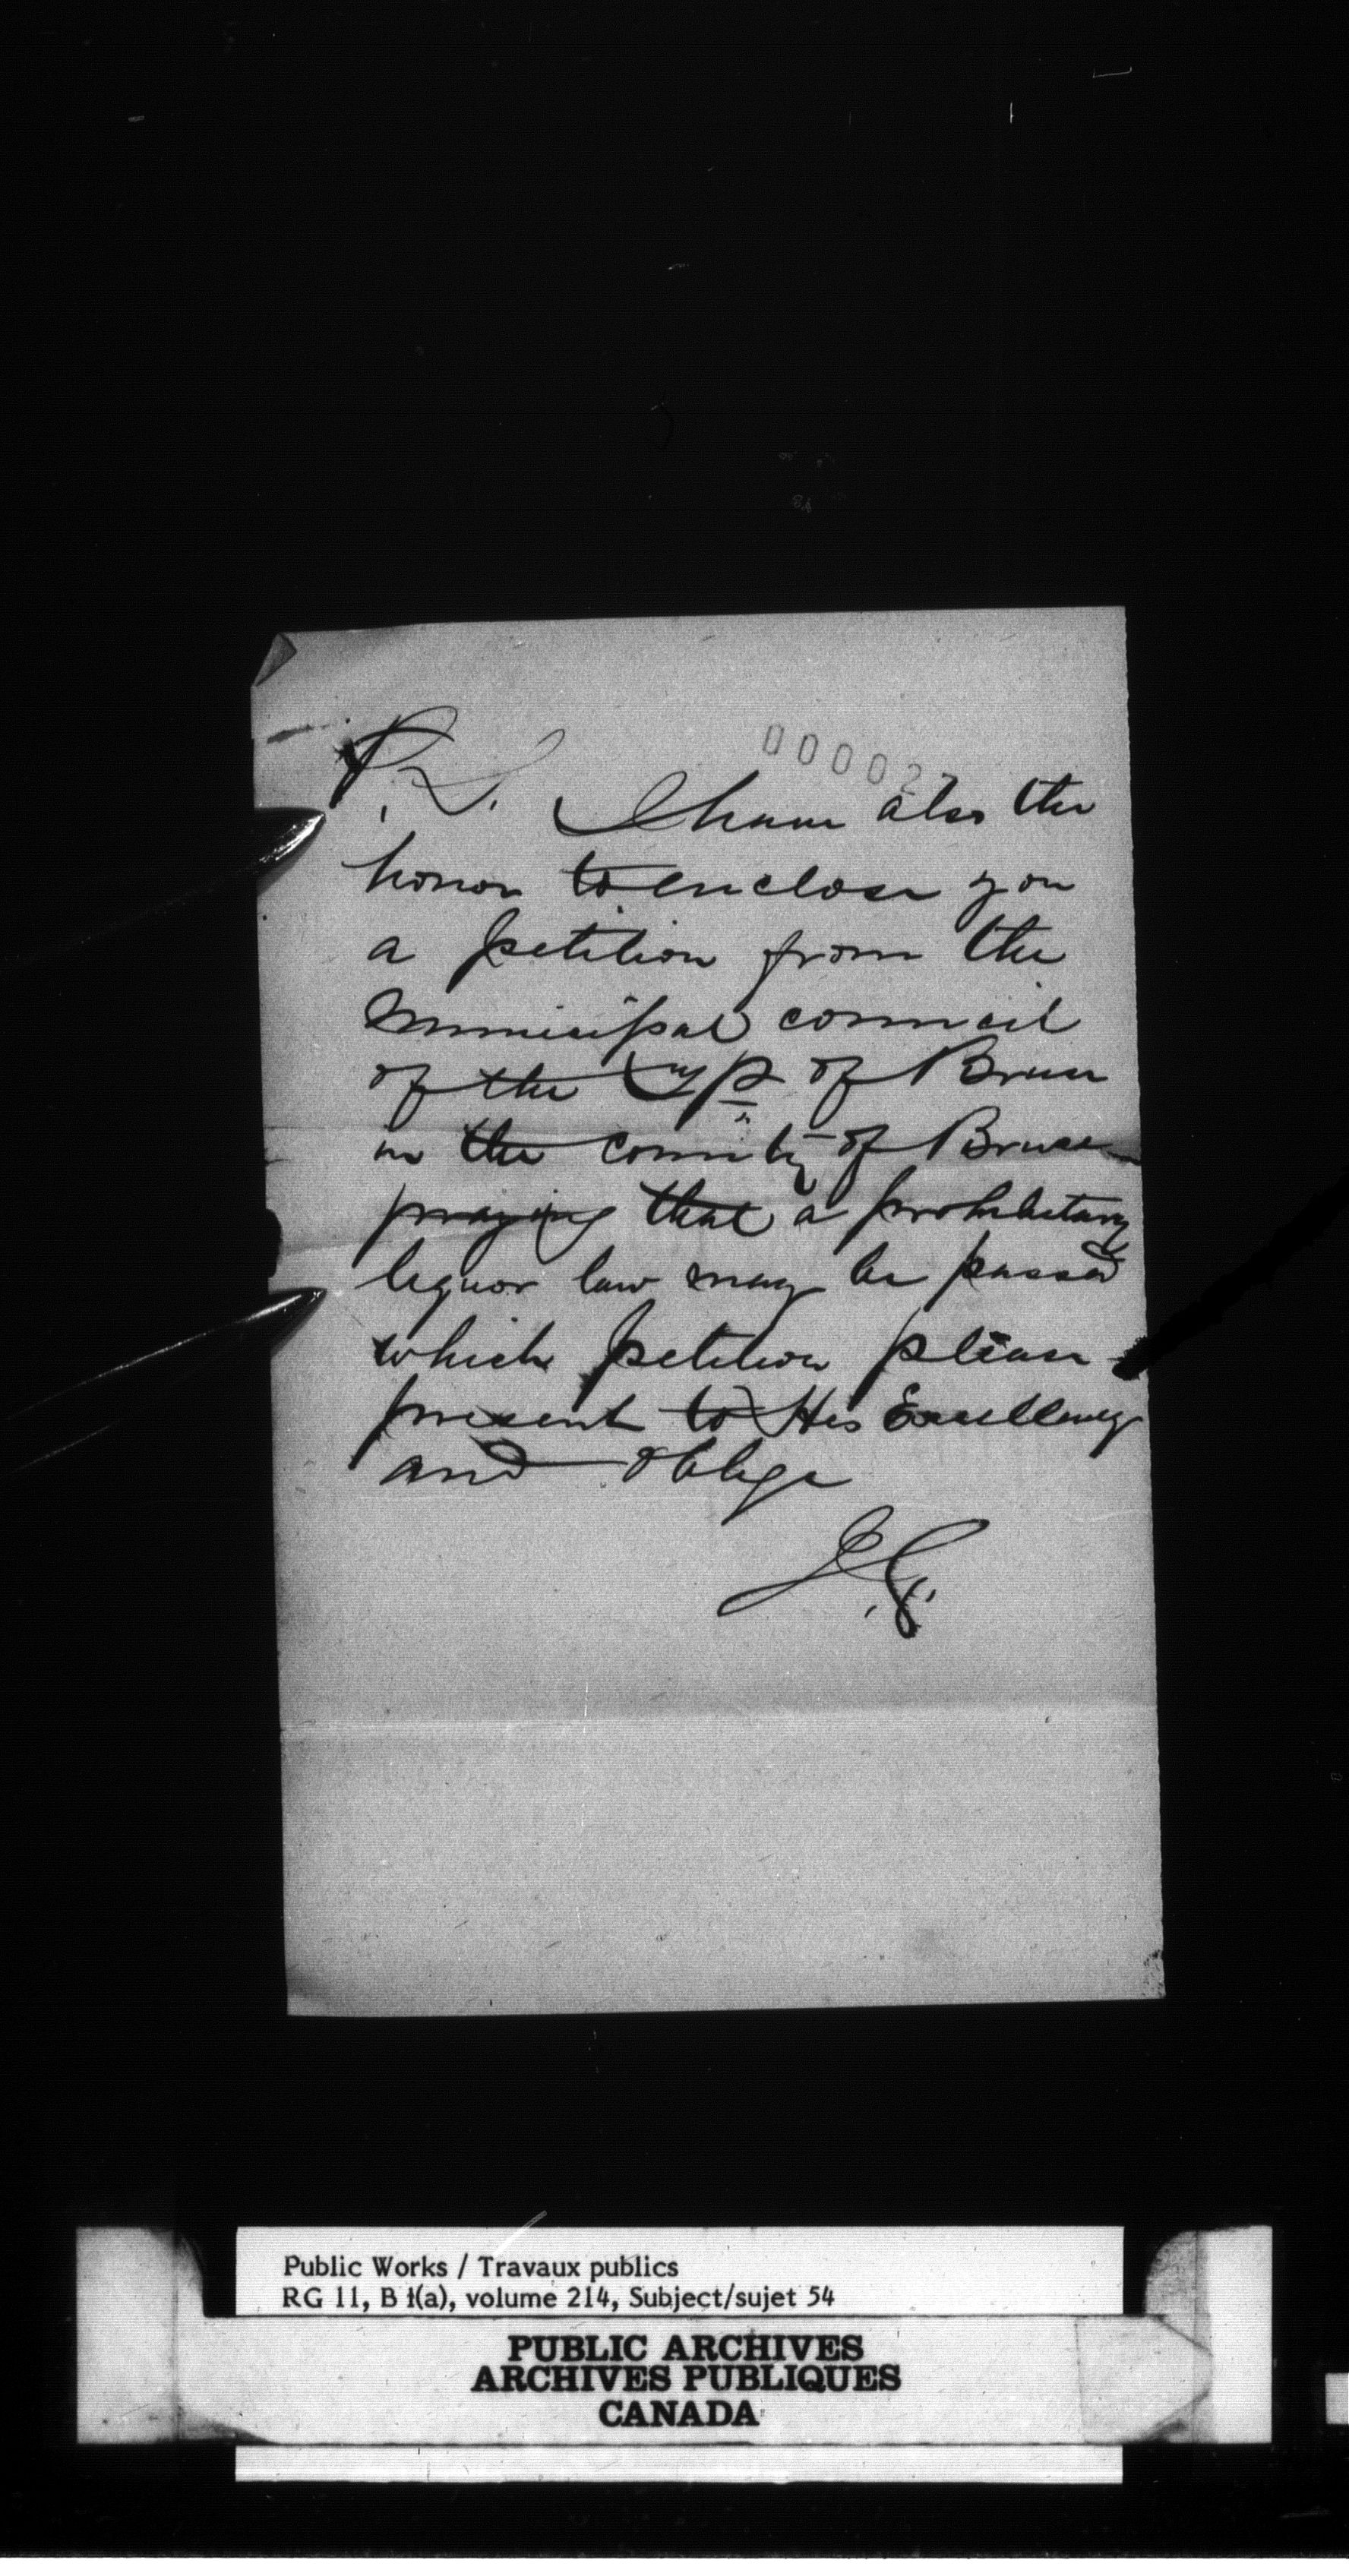 00002
P.S. I have also the
honor to enclose you
a petition from the
Municipal council
of the Twp of Bruce
in the county of Bruce
praying that a prohibitary
liquor law may be passed
which petition please
present to His Excellency
and oblige
J.G.
Public Works / Travaux publics
RG 11, B 1(a), volume 214, Subject/sujet 54
PUBLIC ARCHIVES
ARCHIVES PUBLIQUES
CANADA